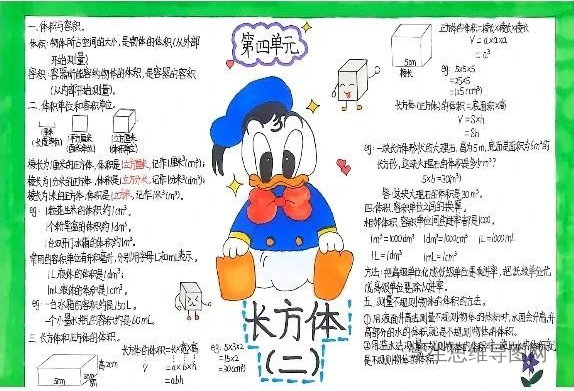 第四单元
一.体积与容积。
体积:物体所占空间的大小,是物体的体积(从外部
开始测量)
容积:容器所能容纳物体的体积,是容器的容积
(从内部开始测量)。
二.体积单位和容积单位。
1厘米
(长度单位)
1平方厘米
(面积单位)
1立方厘米
(体积单位)
棱长为1厘米的正方体,体积是1立方厘米,记作1厘米³(cm³);
棱长为1分米的正方体,体积是1立方分米,记作1分米³(dm³);
棱长为1米的正方体,体积是1立方米,记作1米³(m³)。
eg:1粒花生米的体积约1cm³,
1个粉笔盒的体积约1dm³,
1台双开门冰箱的体积约1m³。
常用的容积单位有升和毫升,分别用字母L和mL表示,
1L液体的体积是1dm³,
1mL液体的体积是1cm³。
eg:一台冰箱的容积约是150L,
一个小墨水瓶的容积约是60mL。
三.长方体和正方体的体积。
长方体的体积=长×宽×高
V = a×b×h
= abh
5cm
3cm
2cm
eg:5×3×2
=15×2
=30(cm³)
长方体
(二)
正方体的体积=棱长×棱长×棱长
V = a×a×a
= a³
5cm
棱长
eg:5×5×5
=25×5
=125(cm³)
长方体(正方体)的体积=底面积×高
V = S×h
= Sh
eg:一块长方体形状的大理石,高为5m,底面是面积为6m²的
长方形,这块大理石的体积是多少m³?
5×6=30(m³)
答:这块大理石的体积是30m³。
四.体积、容积单位间的换算。
相邻体积、容积单位间的进率都是1000。
1m³=1000dm³ 1dm³=1000cm³ 1L=1000mL
1L=1dm³ 1mL=1cm³
方法:把高级单位化成低级单位要乘进率,把低级单位化
成高级单位要除以进率。
五.测量不规则物体的体积的方法。